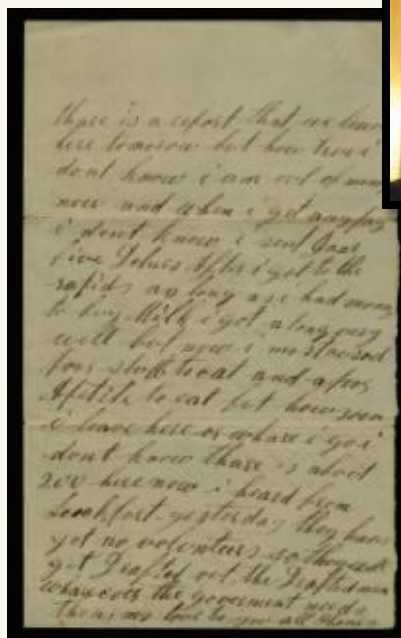 thare is a report that we leave
here tomorow but how true i
dont know i am out of mony
now and when i get any pay
i dont know i sent Jane
five Dolars After i got to the
rapids as long as i had mony
to buy Milk i got along very
well but now i
poor and a poor
Apitite to eat but how soon
i leave here or whare i go i
dont know thare is about
200 here now i heard from
yesterday they have
got no volunteers so they
get Drafted out the Drafted men
the goverment needs
them my love to you all